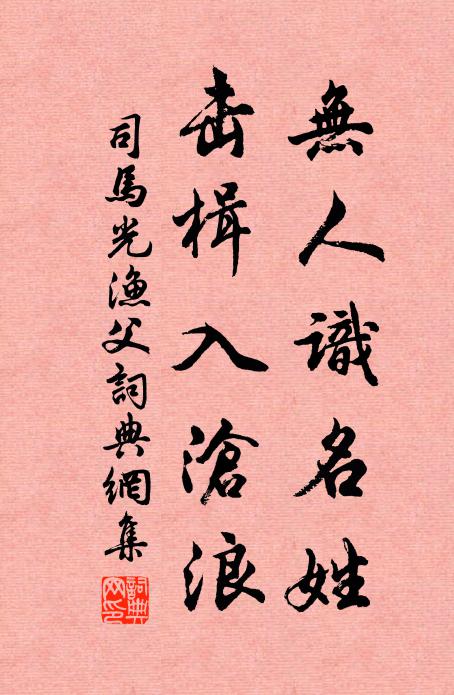 無人識名姓
击楫入滄浪
司馬光漁父詞典網集
詞典网印